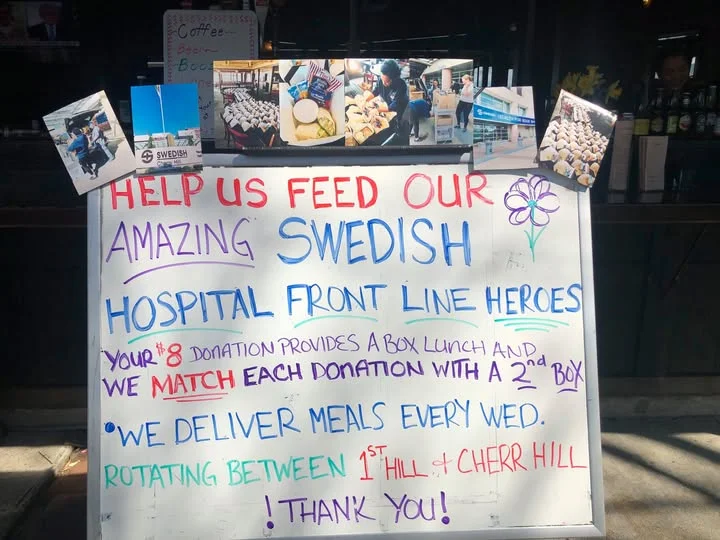 Coffee
SWEDISH
HELP US FEED OUR
AMAZING SWEDISH
HOSPITAL FRONT LINE HEROES
YOUR $8 DONATION PROVIDES A BOX LUNCH AND
WE MATCH EACH DONATION WITH A 2nd BOX
•WE DELIVER MEALS EVERY WED.
ROTATING BETWEEN 1ST HILL & CHERR HILL
! THANK YOU!